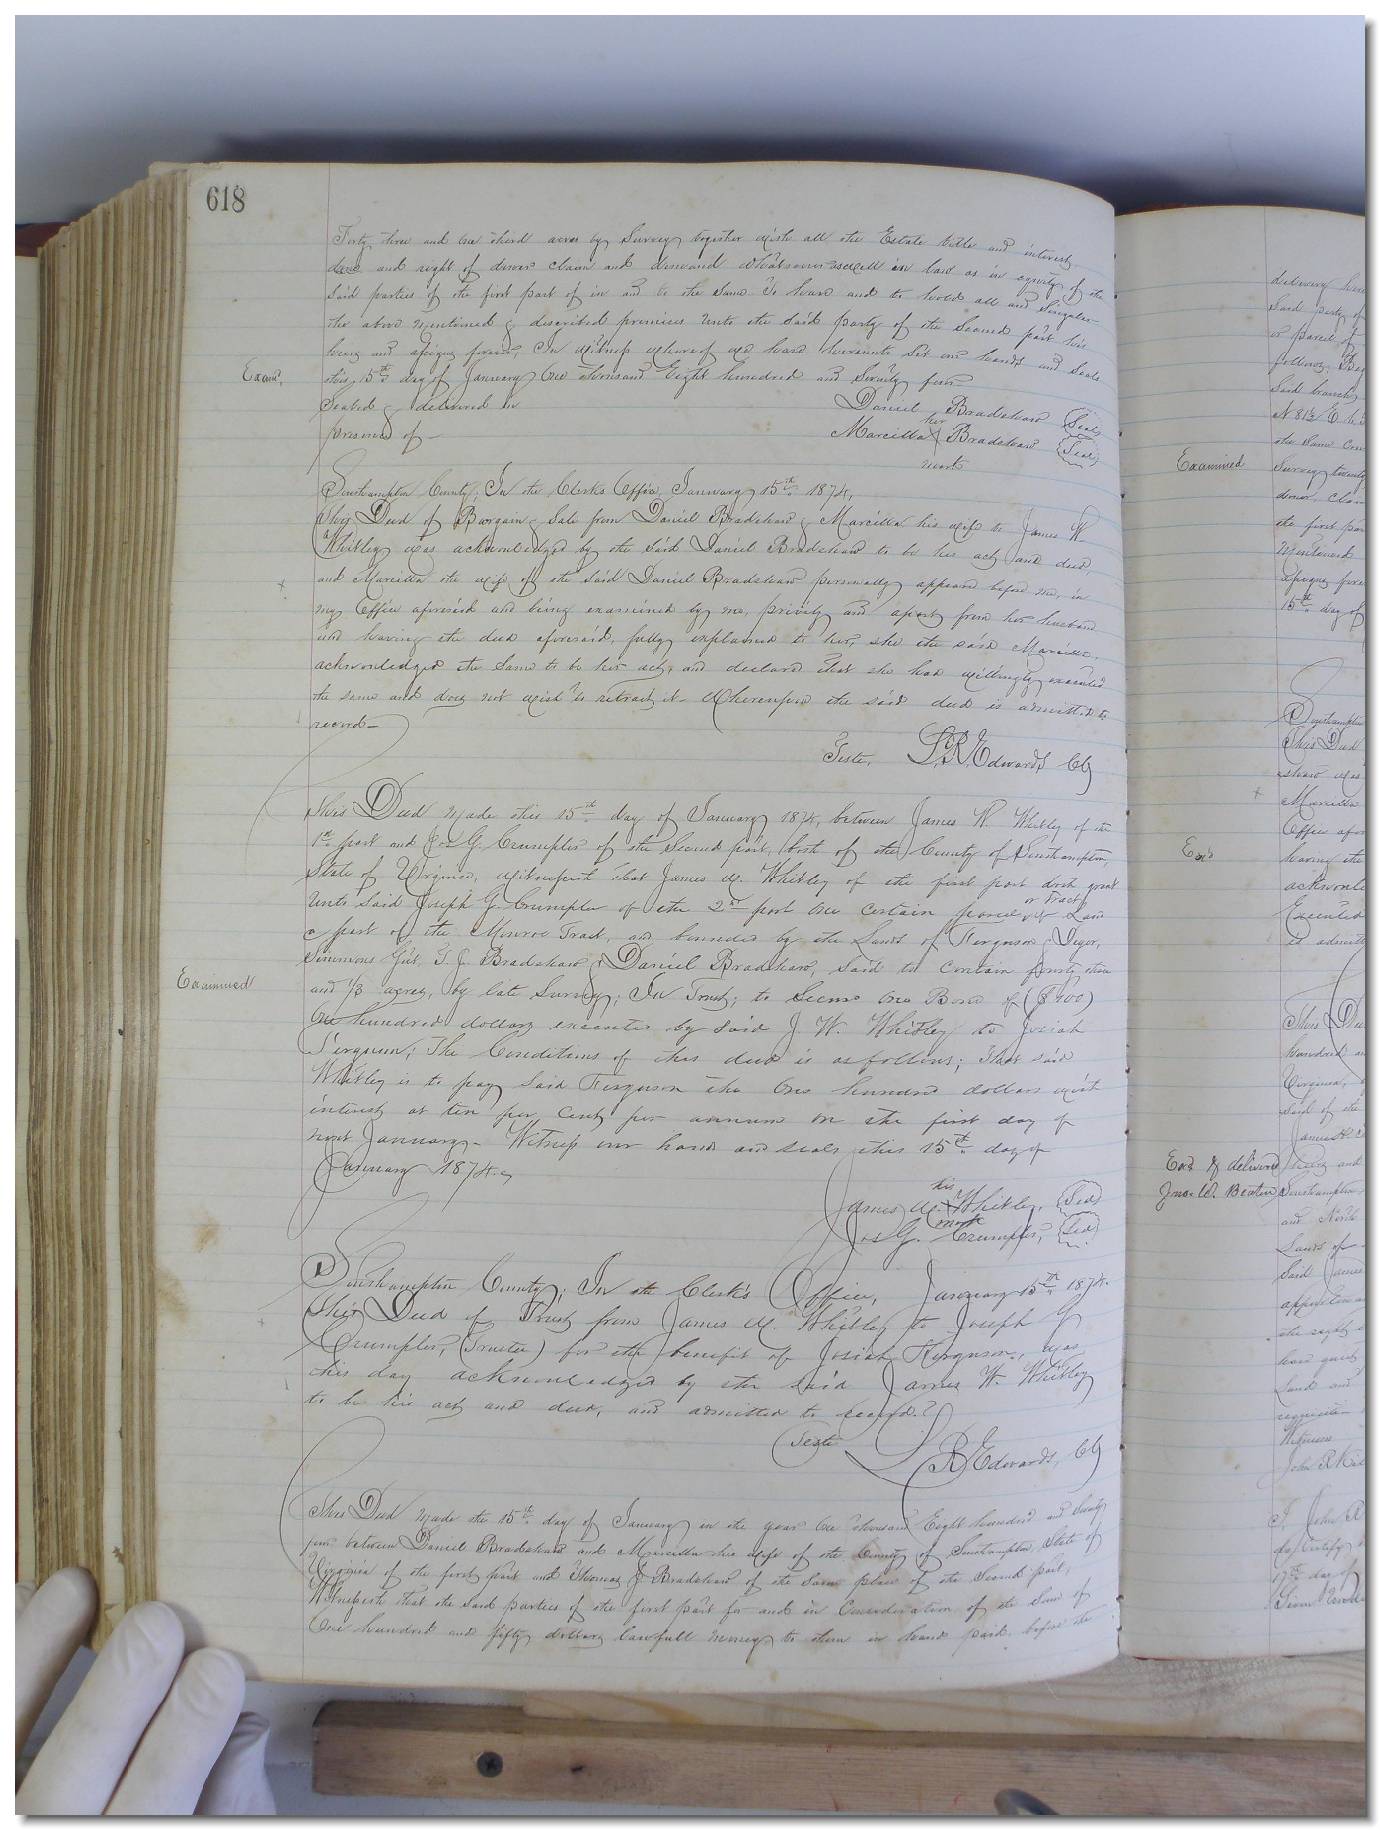 618
Forty three and one third acres by Survey together with all the Estate title and interest
dower and right of dower claim and demand whatsoever as well in law as in equity of the
said parties of the first part of in and to the same To have and to hold all and Singular
the above mentioned & described premises unto the said party of the Second part his
heirs and assigns forever, In witness whereof we have hereunto Set our hands and Seals
Exam,
this 15th day of January One thousand Eight hundred and Seventy four
Sealed & delivered in
Daniel Bradshaw (Seal)
presence of —
her
Marcilla X Bradshaw (Seal)
mark
Southampton County; In the Clerk's Office, January 15th 1874,
This Deed of Bargain & Sale from Daniel Bradshaw & Marcilla his wife to James W.
Whitley was acknowledged by the said Daniel Bradshaw to be his act and deed
and Marcilla the wife of the said Daniel Bradshaw personally appeared before me, in
my Office aforesaid and being examined by me, privily and apart from her husband
and having the deed aforesaid, fully explained to her, she the said Marcilla,
acknowledged the same to be her act, and declared that she had willingly executed
the same and does not wish to retract it — Whereupon the said deed is admitted to
record —
Teste, L.R. Edwards Clk
This Deed made this 15th day of January 1874, between James W. Whitley of the
1st part and Jos G. Crumpler of the Second part, both of the County of Southampton,
State of Virginia, witnesseth that James W. Whitley of the first part doth grant
unto said Joseph G. Crumpler of the 2nd part one certain parcel or Tract of Land
a part of the Monroe Tract, and bounded by the Lands of Ferguson &
Simmons T. J. Bradshaw & Daniel Bradshaw, said to contain forty three
Examined
and 1/3 acres, by late Survey; In Trust; to Secure one Bond of ($100)
One hundred dollars executed by said J. W. Whitley to Josiah
Ferguson; The Conditions of this deed is as follows; that said
Whitley is to pay said Ferguson the One hundred dollars with
interest at ten per cent per annum on the first day of
next January — Witness our hands and seals this 15th day of
January 1874.
his
James W. X Whitley, (Seal)
mark
Jos G. Crumpler, (Seal)
Southampton County; In the Clerk's Office, January 15th 1874.
This Deed of Trust from James W. Whitley to Joseph G
Crumpler, (Trustee) for the benefit of Josiah Ferguson, was
this day acknowledged by the said James W. Whitley
to be his act and deed, and admitted to record.
Teste L R Edwards, Clk
This Deed made the 15th day of January in the year One thousand Eight hundred and Seventy
four between Daniel Bradshaw and Marcilla his wife of the County of Southampton, State of
Virginia of the first part and Thomas J. Bradshaw of the same place of the second part,
Witnesseth that the said parties of the first part for and in Consideration of the Sum of
One hundred and fifty dollars lawfull money to them in hand paid before the
delivery
Said party of
or parcel of
following Beg
Said branch
N 81½ E
the Same
Examined
Survey twenty
dower, claim
the first par
mentioned
assigns fore
15th day of
Southampton
This Deed
shaw was
Marcilla
Office afor
Exd
having the
acknowle
Executed
is admitt
This Dee
hundred an
Virginia,
said of the
James
Exd & delivered
heirs and
Jno. W. Beaton
Southampton
and North
Lands of
Said James
appurtenan
the right
have quiet
Land and
requisite
Witness
John R
I, John R
do certify
17th day of
Given unde